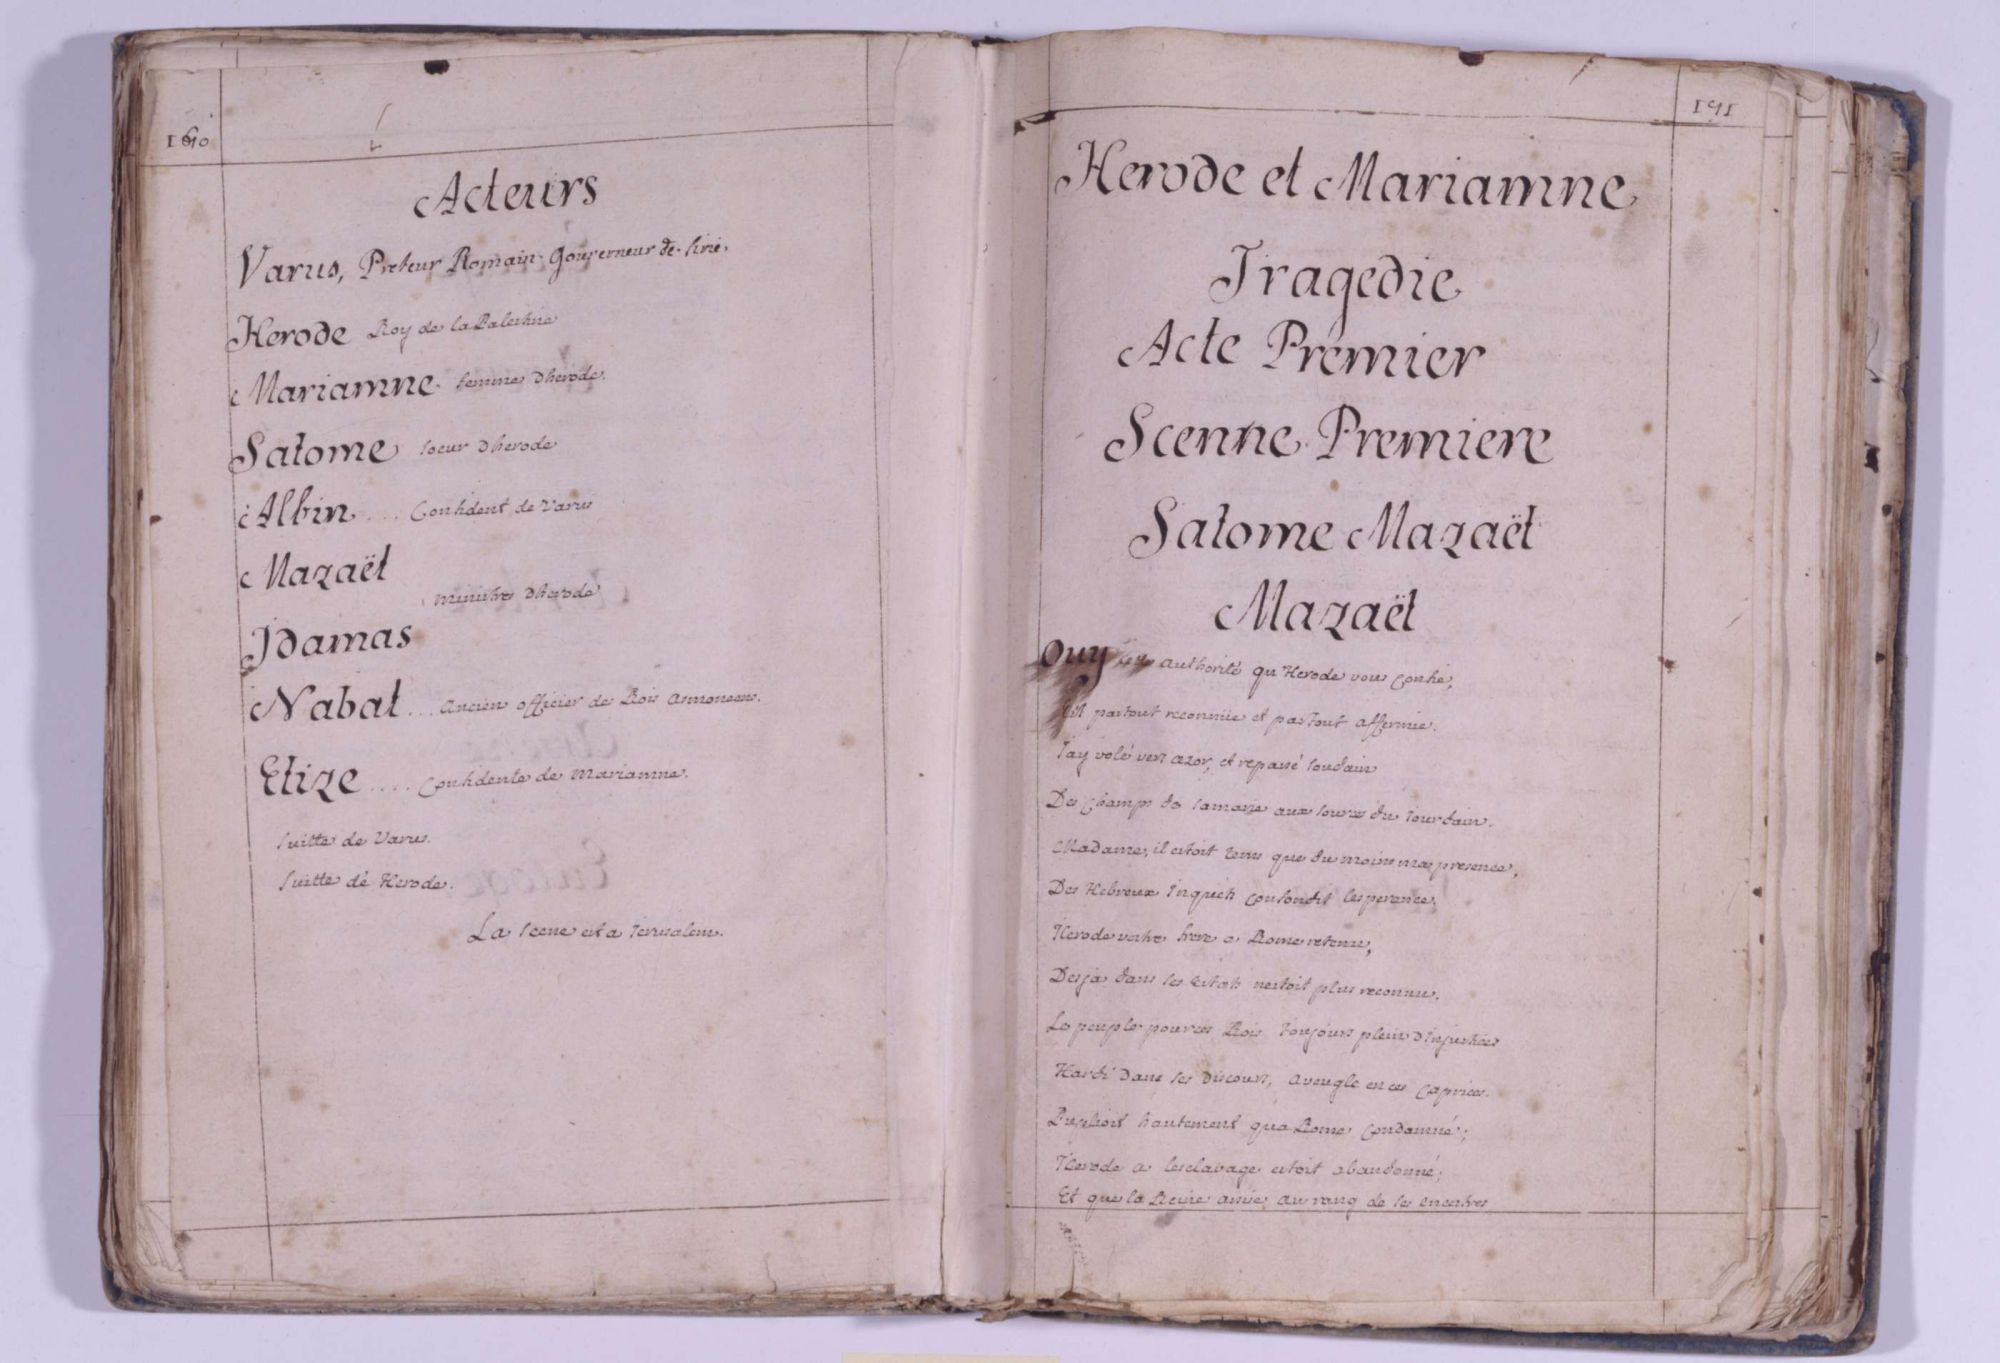 160
Acteurs
Varus, Preteur Romain Gouverneur de Sirie.
Herode Roy de la Palestine
Mariamne femme dherode.
Salome soeur dherode
Albin .... Confident de Varus
Mazaël
ministres dherode
Idamas
Nabal ... Ancien officier de Rois asmoneens.
Elize .... Confidente de Mariamne.
Suitte de Varus.
Suitte de Herode.
La scene est a Jerusalem.
191
Herode et Mariamne
Tragedie
Acte Premier
Scenne Premiere
Salome Mazaël
Mazaël
Ouy authorité qu'Herode vous confie,
Est partout reconnüe et partout affermie.
J'ay volé vers azor, et repassé soudain
Des Champs de samarie aux sources du Jourdain.
Madame, il estoit tems que du moins ma presence,
Des Hebreux Inquiets confondit lesperance,
Herode vostre frere a Rome retenu,
Desja dans ses Estats nestoit plus reconnu.
Le peuple pour ces Rois toujours plein dInjustices
Hardi dans ses discours, aveugle en ces Caprices.
Puplioit hautement qua Rome Condamné;
Herode a lesclavage estoit abandonné;
Et que la Reine assise au rang de ses encestres